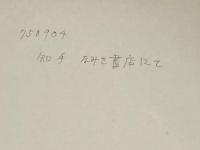 758904
知多 なみき書店にて